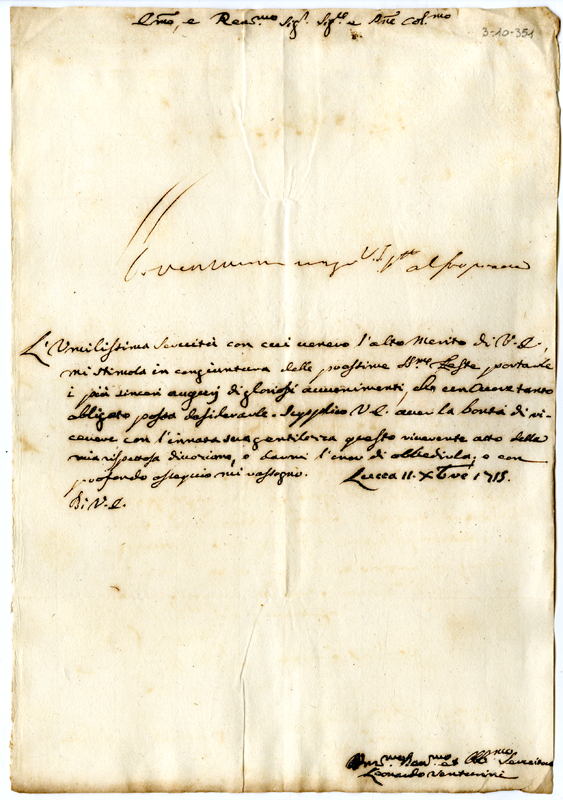 Emo, e Reve.mo Sig.r Sig.re e Pne Col.mo
3-10-351
L'Umilissima Servitù con cui venero l'alto Merito di V.E.,
mi stimola in congiuntura delle prossime SS.me Feste portarle
i più sinceri augurj di gloriosi avvenimenti, che un cuore tanto
obligato possa desiderarle. Supplico V.E. aver la bontà di ri-
cevere con l'innata sua gentilezza questo riverente atto della
mia rispettosa divozione, e darmi l'onor di obbedirla; e con
profondo assequio mi rassegno. Lucca 11. Xbre 1715.
Di V.E.
Um.mo Dev.mo et Obb.mo Servitore
Leonardo Venturini